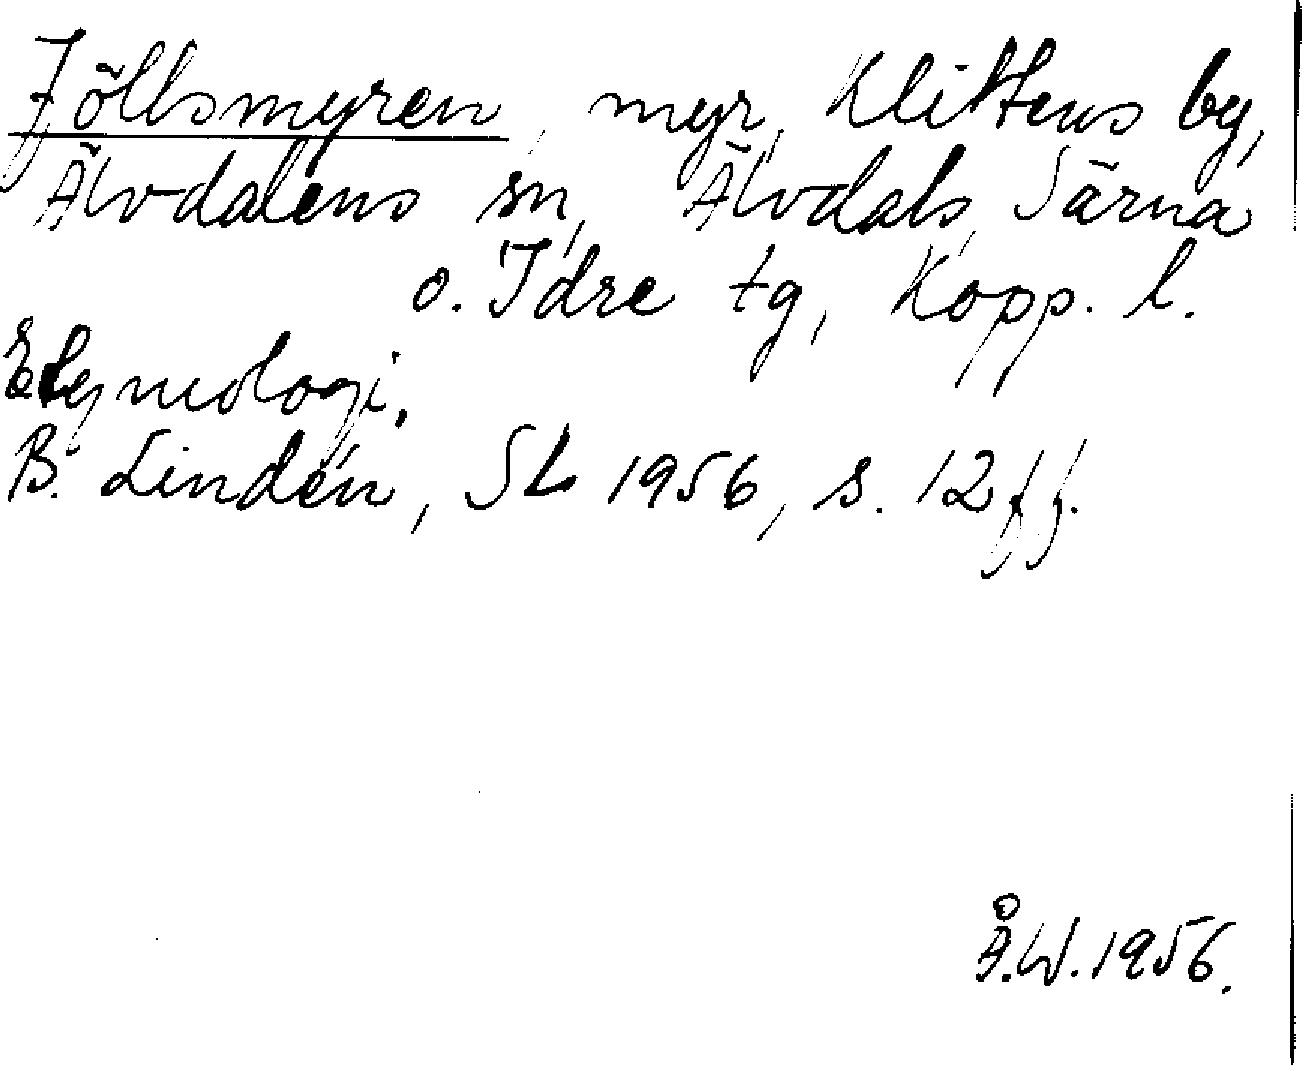 Fjöllsmyren, myr, Klittens by,
Älvdalens sn, Älvdals, Särna
o. Idre tg, Kopp. l.
Etymologi.
B. Lindén, SL 1956, s. 12 ff.
Å.W. 1956.